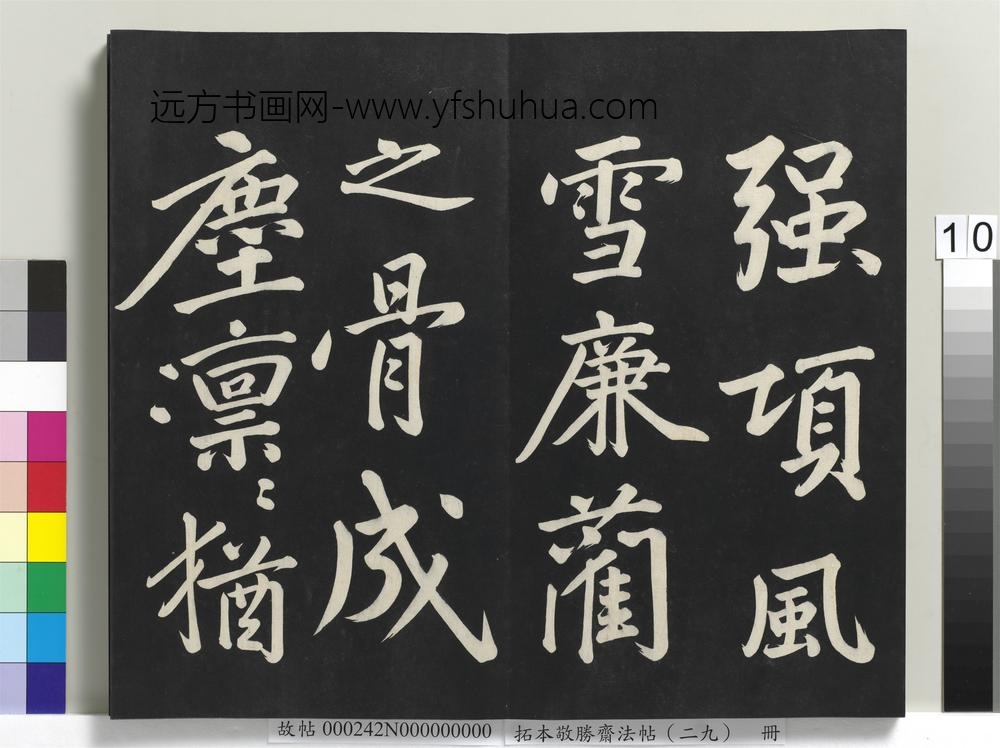 远方书画网-www.yfshuhua.com
强項風
雪廉藺
之骨成
塵凛〻猶
10
故帖 000242N000000000 拓本敬勝齋法帖（二九） 冊